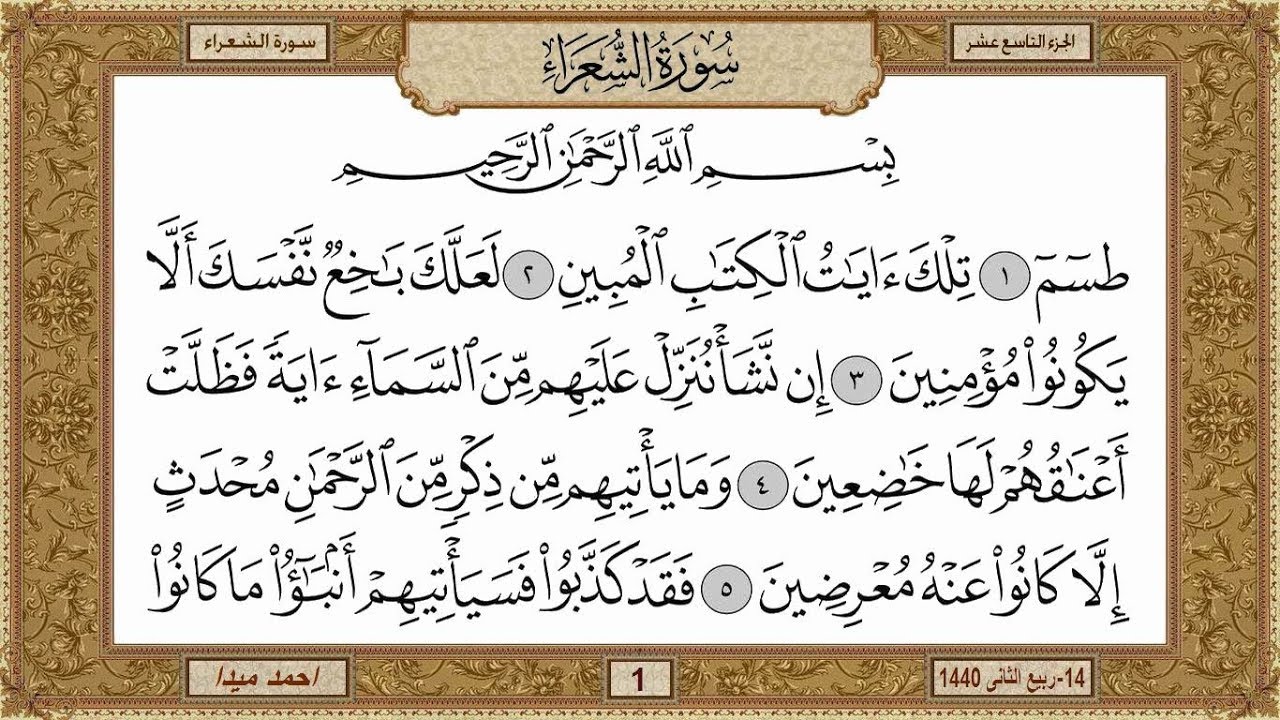 الجزء التاسع عشر
سُورَةُ الشُّعَرَاءِ
سورة الشعراء
بِسْمِ ٱللَّهِ ٱلرَّحْمَٰنِ ٱلرَّحِيمِ
طسٓمٓ ١ تِلْكَ ءَايَٰتُ ٱلْكِتَٰبِ ٱلْمُبِينِ ٢ لَعَلَّكَ بَٰخِعٌ نَّفْسَكَ أَلَّا
يَكُونُوا۟ مُؤْمِنِينَ ٣ إِن نَّشَأْ نُنَزِّلْ عَلَيْهِم مِّنَ ٱلسَّمَآءِ ءَايَةً فَظَلَّتْ
أَعْنَٰقُهُمْ لَهَا خَٰضِعِينَ ٤ وَمَا يَأْتِيهِم مِّن ذِكْرٍ مِّنَ ٱلرَّحْمَٰنِ مُحْدَثٍ
إِلَّا كَانُوا۟ عَنْهُ مُعْرِضِينَ ٥ فَقَدْ كَذَّبُوا۟ فَسَيَأْتِيهِمْ أَنۢبَٰٓؤُا۟ مَا كَانُوا۟
14-ربيع الثانى 1440
1
احمد ميدا